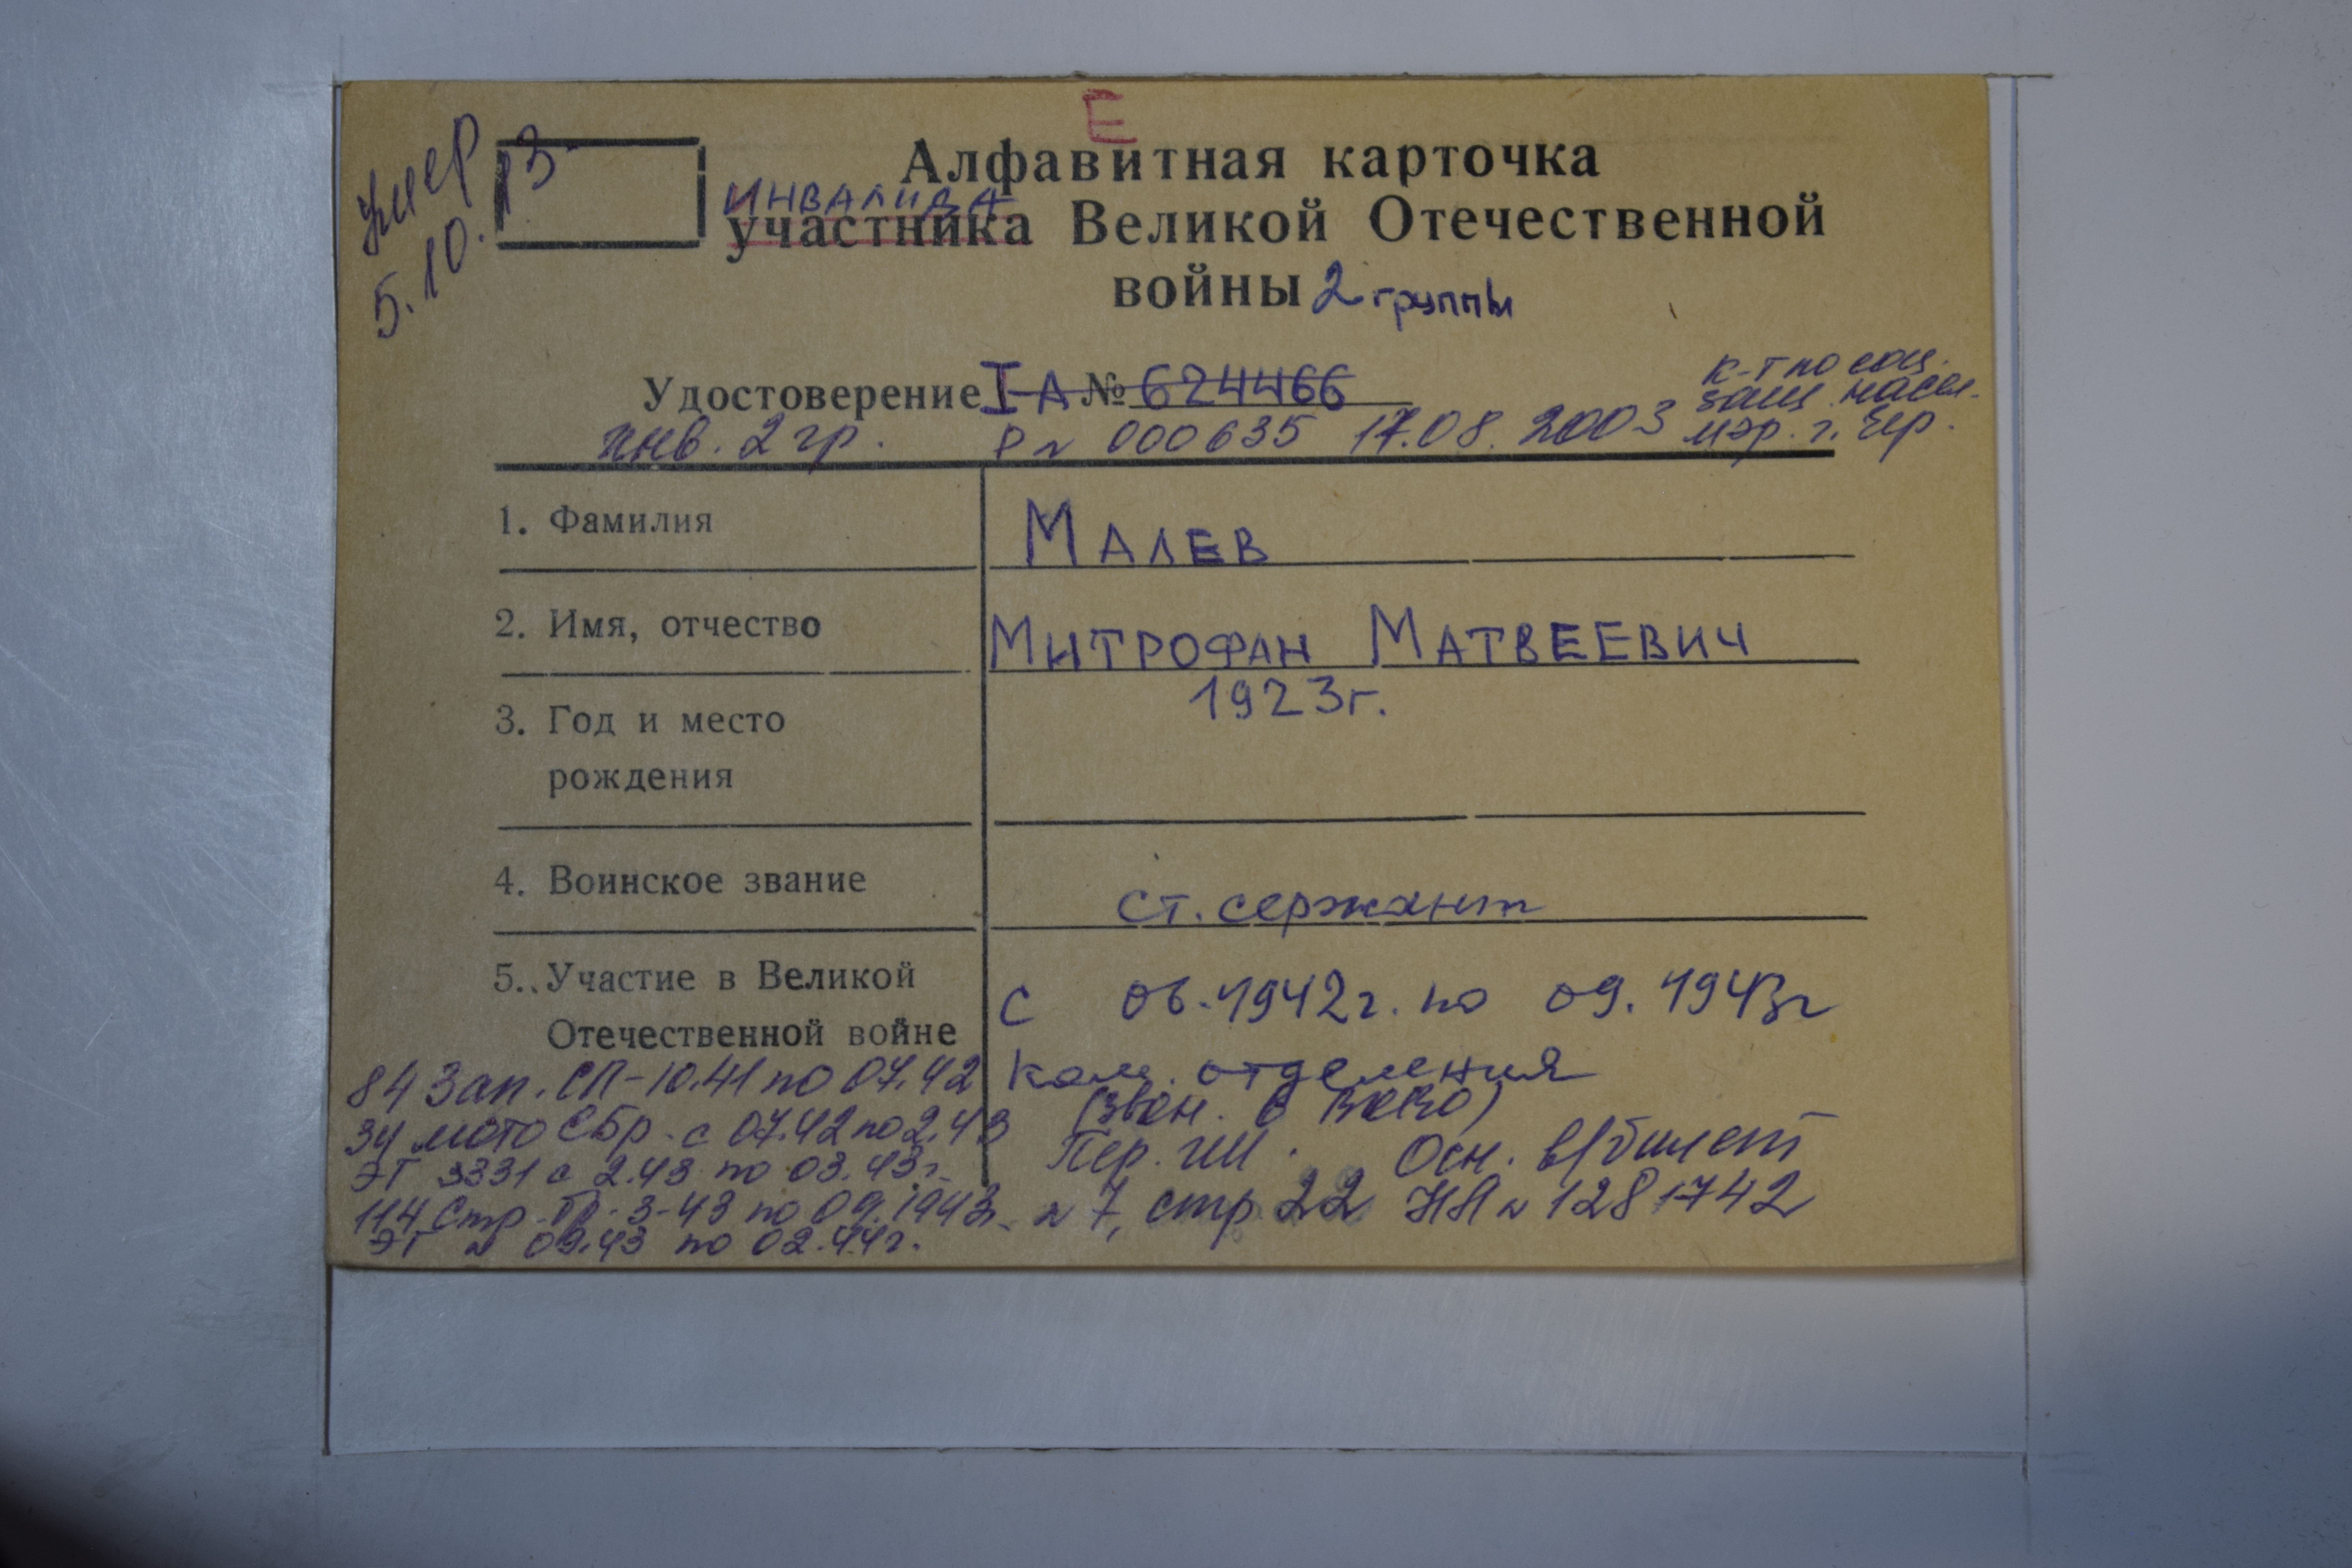 Е
Умер
5.10.13
Алфавитная карточка
инвалида
участника Великой Отечественной
войны 2 группы
Удостоверение I-А № 624466
к-т по соц.
защ. насел.
мэр. г. Чер.
инв. 2 гр. Р № 000635 17.08.2003
1. Фамилия Малев
2. Имя, отчество Митрофан Матвеевич
3. Год и место 1923г.
рождения
4. Воинское звание ст. сержант
5. Участие в Великой с 06.1942г. по 09.1943г
Отечественной войне
84 Зап. СП-10.41 по 07.42 ком. отделения
(звон. в ВКВО)
34 мото СБр. с 07.42 по 2.43 Пер. Осн. в/билет
ЭГ 3331 с 2.43 по 03.43г.
114 Стр. 3-43 по 09.1943г. № 7, стр 22 НА № 1281742
ЭГ 09.43 по 02.44г.